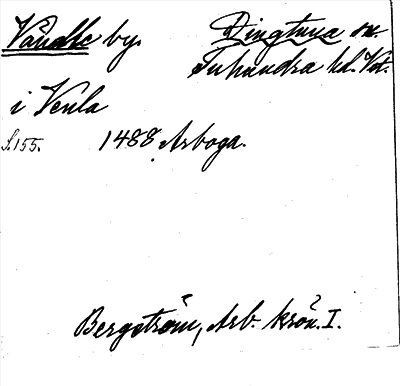 Vändle by. Dingtuna sn.
Tuhundra hd. Vst.
i Venla
S. 155. 1488 Arboga.
Bergström, Arb. krön. I.